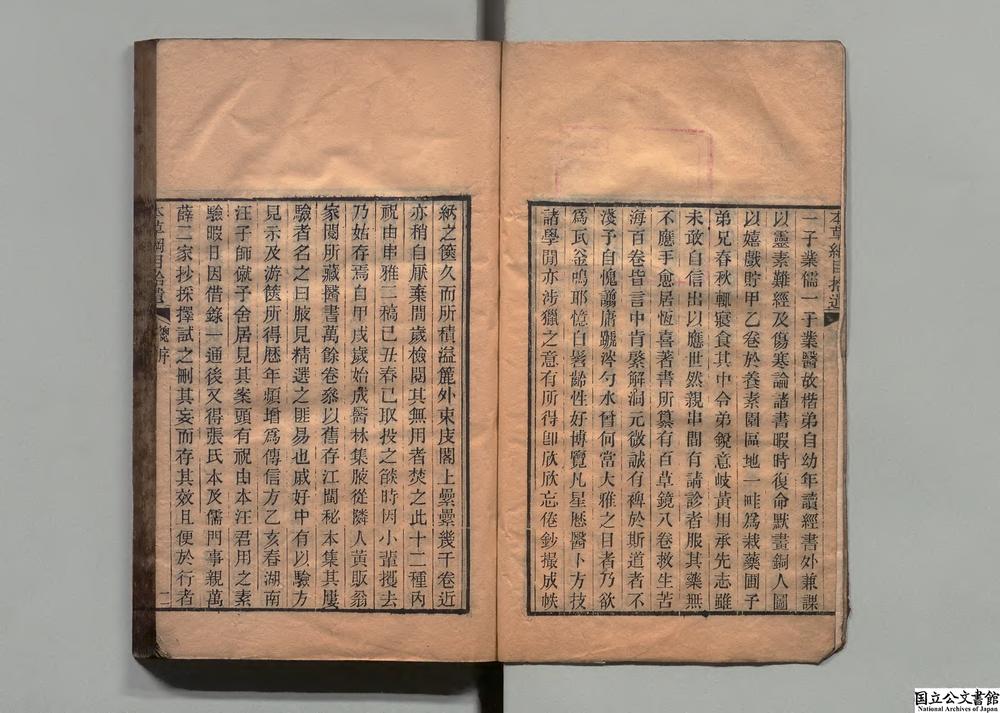 一子業儒一子業醫故楷弟自幼年讀經書外兼課
以靈素難經及傷寒論諸書暇時復命默畫銅人圖
以嬉戲貯甲乙卷於養素園區地一畦爲栽藥圃予
弟兄春秋輒寢食其中令弟銳意岐黃用承先志雖
未敢自信出以應世然親串間有請診者服其藥無
不應手愈居恆喜著書所纂有百草鏡八卷救生苦
海百卷皆言中肯綮解洞元微誠有裨於斯道者不
淺予自愧謭庸蹏涔勺水曾何當大雅之目者乃欲
爲瓦釜鳴耶憶自髫齡性好博覽凡星歷醫卜方技
諸學閒亦涉獵之意有所得卽欣欣忘倦鈔撮成帙
納之篋久而所積溢簏外束庋閣上纍纍幾千卷近
亦稍自厭棄間歲檢閱其無用者焚之此十二種內
祝由串雅二稿已丑春已取投之燄時因小輩攫去
乃姑存焉自甲戌歲始成醫林集腋從隣人黃販翁
家閱所藏醫書萬餘卷叅以舊存江閩秘本集其屢
驗者名之曰腋見精選之匪易也戚好中有以驗方
見示及游篋所得歷年頻增爲傳信方乙亥春湖南
汪子師僦予舍居見其案頭有祝由本汪君用之素
驗暇日因借錄一通後又得張氏本及儒門事親萬
薛二家抄採擇試之刪其妄而存其效且便於行者
本草綱目拾遺
總序
二
国立公文書館
National Archives of Japan